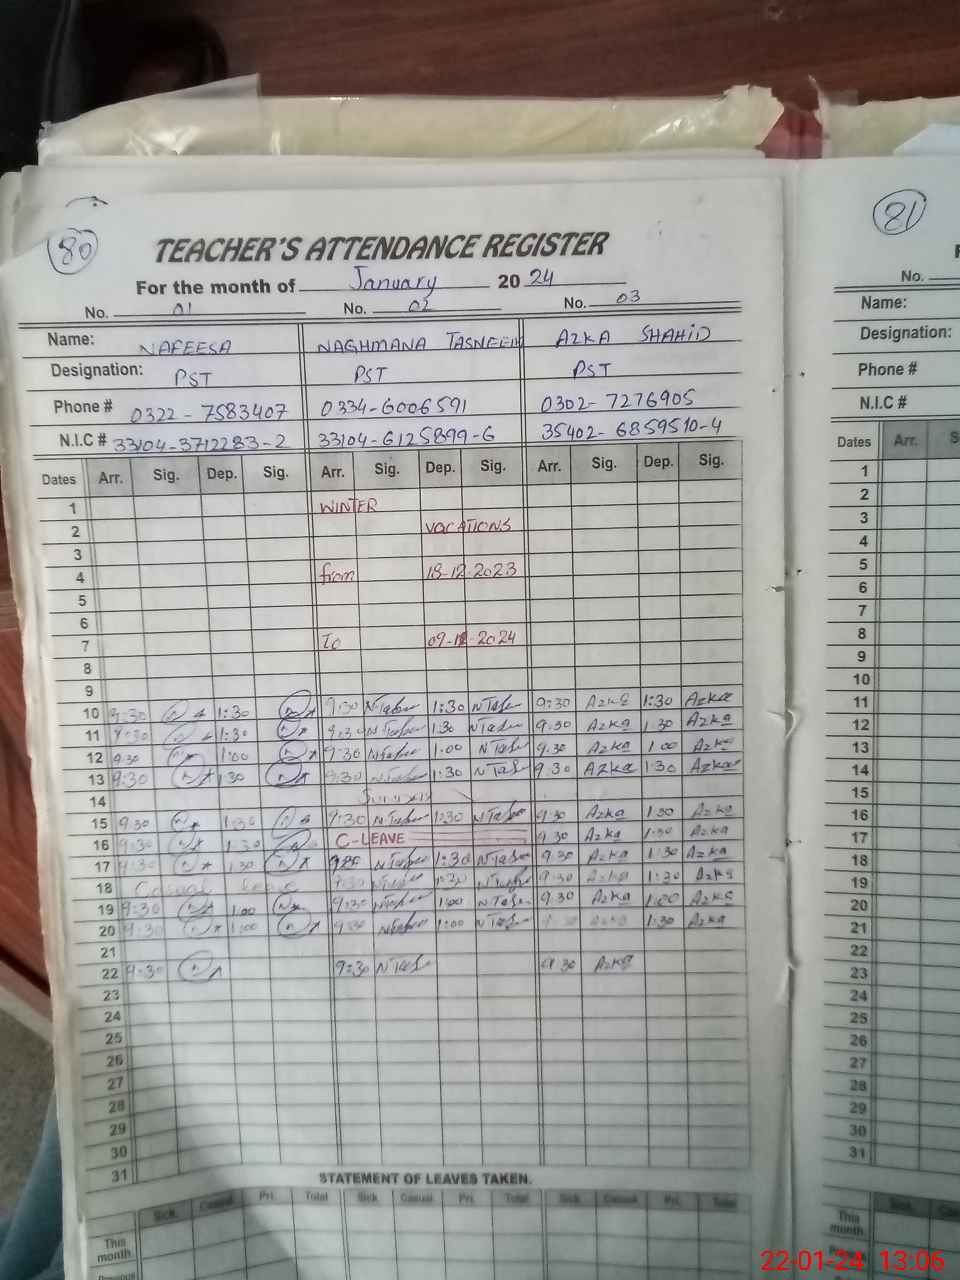 80
TEACHER'S ATTENDANCE REGISTER
For the month of January 2024
No. 01 No. 02 No. 03
Name: NAFEESA NAGHMANA TASNEEM AZKA SHAHID
Designation: PST PST PST
Phone # 0322-7583407 0334-6006591 0302-7276905
N.I.C # 33104-3712283-2 33104-6125899-6 35402-6859510-4
Dates Arr. Sig. Dep. Sig. Arr. Sig. Dep. Sig. Arr. Sig. Dep. Sig.
1 WINTER
2 VACATIONS
3
4 from 18-12-2023
5
6
7 To 09-2024
8
9
10 9:30 1:30 9:30 1:30 9:30 Azka 1:30 Azka
11 9:30 1:30 9:30 1:30 9:30 Azka 1:30 Azka
12 9:30 1:00 9:30 1:00 9:30 Azka 1:00 Azka
13 9:30 1:30 9:30 1:30 9:30 Azka 1:30 Azka
14 Sunday
15 9:30 1:30 9:30 1:30 9:30 Azka 1:30 Azka
16 9:30 1:30 C-LEAVE 9:30 Azka 1:30 Azka
17 9:30 1:30 1:30 9:30 Azka 1:30 Azka
18 Casual leave 9:30 1:30 9:30 Azka 1:30 Azka
19 9:30 1:00 9:30 1:00 9:30 Azka 1:00 Azka
20 9:30 1:00 9:30 1:00 9:30 Azka 1:30 Azka
21
22 9:30 9:30 9:30 Azka
23
24
25
26
27
28
29
30
31
STATEMENT OF LEAVES TAKEN.
Sick. Casual Pri. Total Sick Casual Pri. Total Sick Casual Pri. Total
This month
Previous
81
No.
Name:
Designation:
Phone #
N.I.C #
Dates Arr.
1
2
3
4
5
6
7
8
9
10
11
12
13
14
15
16
17
18
19
20
21
22
23
24
25
26
27
28
29
30
31
This month
22-01-24 13:06